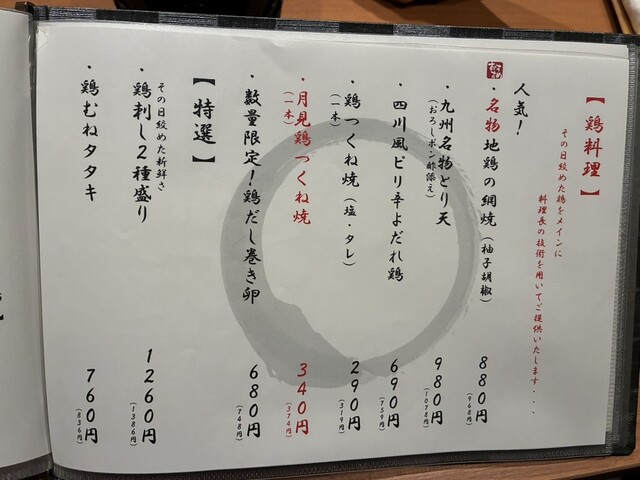 【鶏料理】
その日絞めた鶏をメインに
料理長の技術を用いてご提供いたします・・・
人気！
・名物地鶏の網焼（柚子胡椒）
880円
（968円）
・九州名物とり天
（おろしポン酢添え）
980円
（1078円）
・四川風ピリ辛よだれ鶏
690円
（759円）
・鶏つくね焼（塩・タレ）
（一本）
290円
（319円）
・月見鶏つくね焼
（一本）
340円
（374円）
・数量限定！鶏だし巻き卵
680円
（748円）
【特選】
その日絞めた新鮮さ
・鶏刺し2種盛り
1260円
（1386円）
・鶏むねタタキ
760円
（836円）